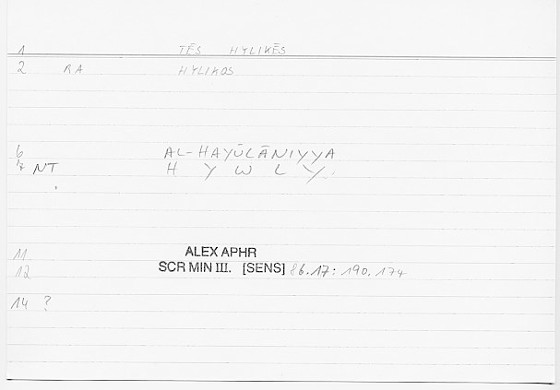 1 TĒS HYLIKĒS
2 RA HYLIKOS
6 AL-HAYŪLĀNIYYA
7 NT H Y W L Y.
11 ALEX APHR
12 SCR MIN III. [SENS] 86.17: 190.174
14 ?